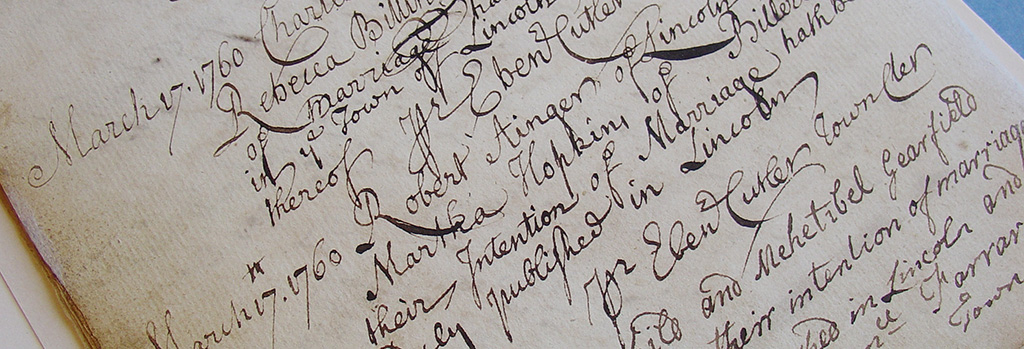 March 17. 1760
Rebecca
of marriage
in ye Town of Lincoln
thereof
pr Eben Cutler
March 17. 1760
Robert Ainger of Lincoln
Martha Hopkins of
their Intention of Marriage hath
published in Lincoln
pr Eben Cutler Town Cler
and Mehetibel Gearfield
their intention of marriage
in Lincoln and
Farrar
Town